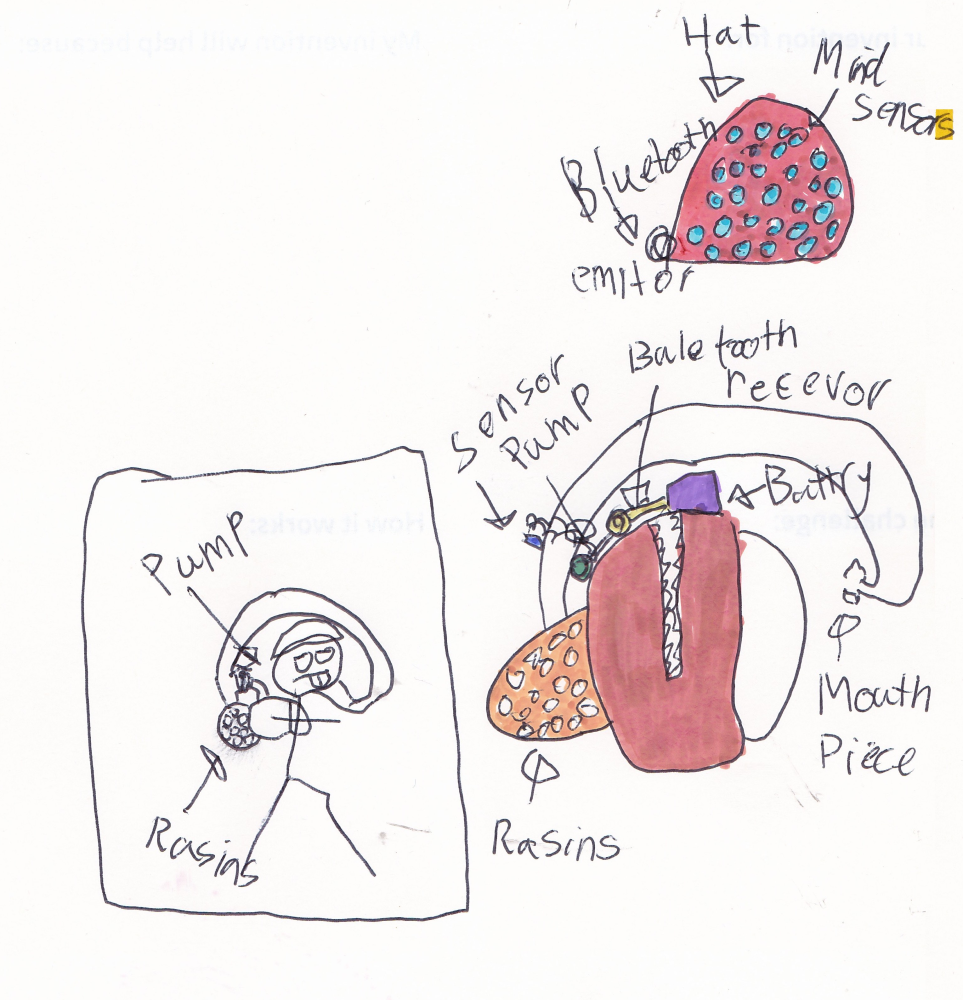 Hat
Mind
sensors
Bluetooth
emitor
Baletooth
recevor
Sensor
Pump
Battry
Mouth
Piece
Rasins
Pump
Rasins